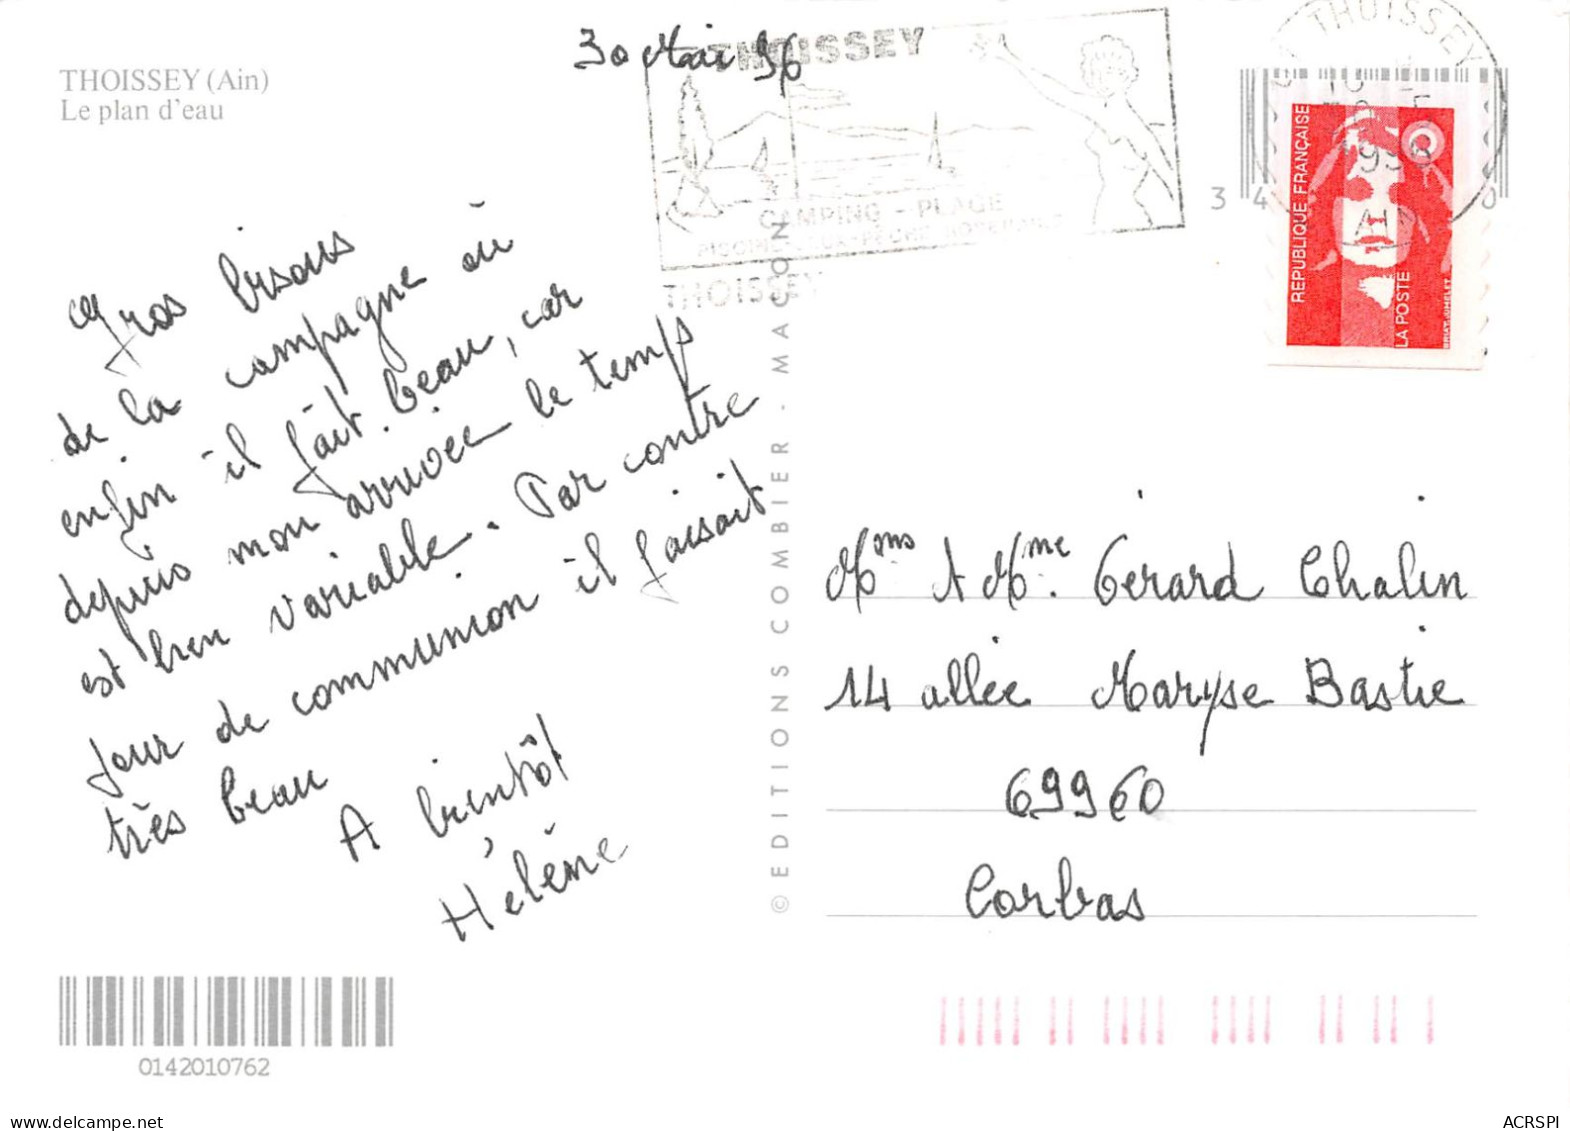 THOISSEY (Ain)
Le plan d'eau
30 Mai 96
THOISSEY
CAMPING - PLAGE
THOISSEY
THOISSEY
1996
AIN
REPUBLIQUE FRANÇAISE
LA POSTE
34
0
Gros bisous
de la campagne où
enfin il fait beau, car
depuis mon arrivée le temps
est bien variable. Par contre
jour de communion il faisait
très beau
A bientôt
Hélène
© EDITIONS COMBIER - MACON
Mme Gérard Chalin
14 allée Maryse Bastie
69960
Corbas
0142010762
www.delcampe.net
ACRSPI